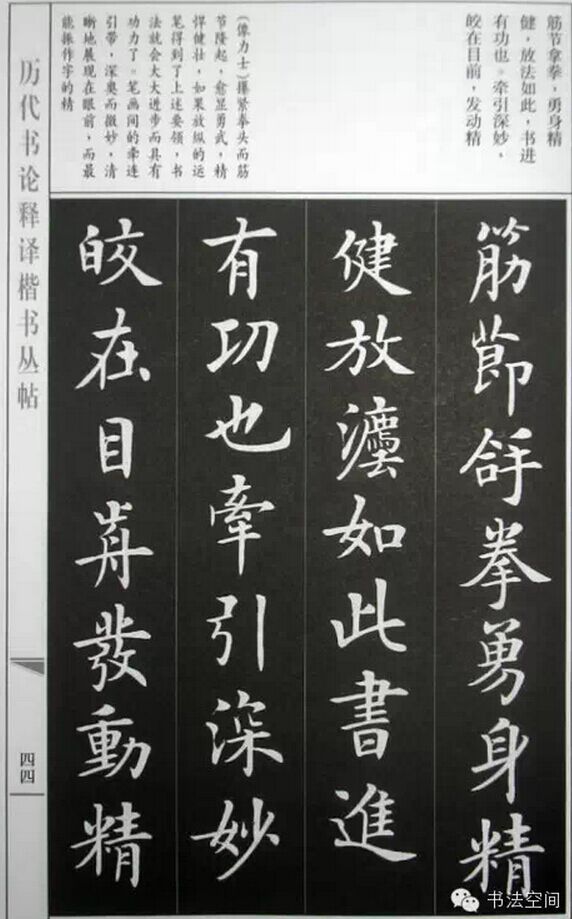 筋节拿拳，勇身精
健，放法如此，书进
有功也。牵引深妙，
皎在目前，发动精
（像力士）攥紧拳头而筋
节隆起，愈显勇武，精
悍健壮，如果放纵的运
笔得到了上述要领，书
法就会大大进步而具有
功力了。笔画间的牵连
引带，深奥而微妙，清
晰地展现在眼前，而最
能振作字的精
筋節拿拳勇身精
健放灋如此書進
有功也牽引深妙
皎在目歬發動精
历代书论释译楷书丛帖
四四
书法空间